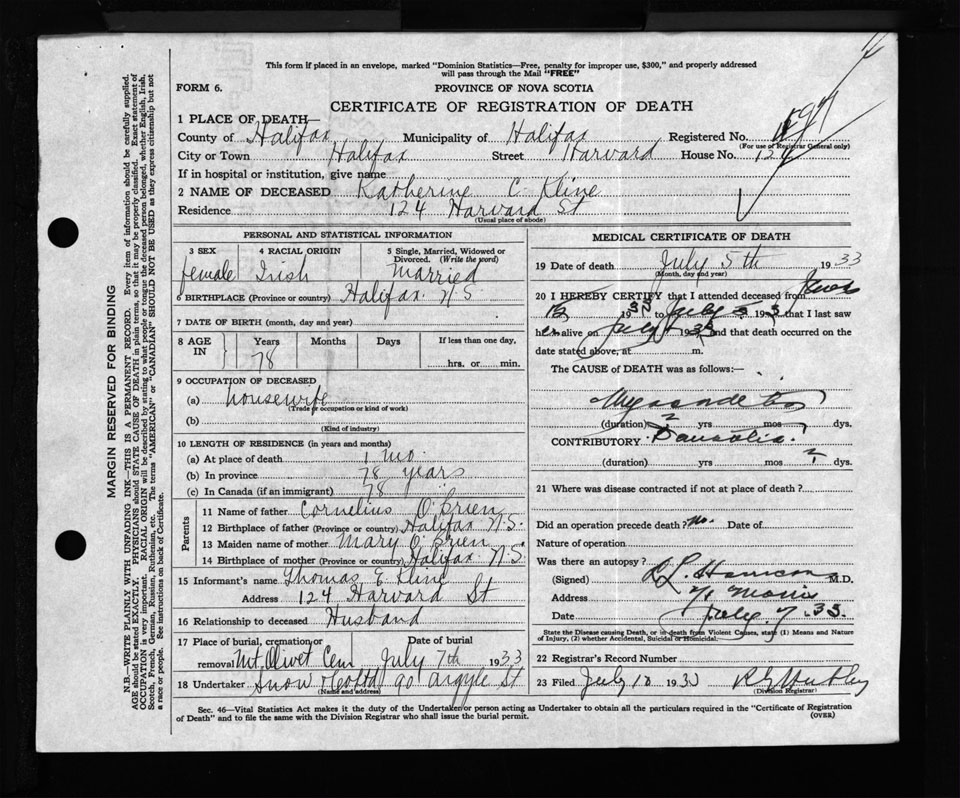 This form if placed in an envelope, marked "Dominion Statistics—Free, penalty for improper use, $300," and properly addressed
will pass through the Mail "FREE"
FORM 6.
PROVINCE OF NOVA SCOTIA
CERTIFICATE OF REGISTRATION OF DEATH
1 PLACE OF DEATH—
County of Halifax Municipality of Halifax Registered No.
(For use of Registrar General only)
City or Town Halifax Street Harvard House No. 124
If in hospital or institution, give name
2 NAME OF DECEASED Katherine C. Kline
Residence 124 Harvard St
(Usual place of abode)
PERSONAL AND STATISTICAL INFORMATION
3 SEX 4 RACIAL ORIGIN 5 Single, Married, Widowed or Divorced. (Write the word)
female Irish Married
6 BIRTHPLACE (Province or country) Halifax N.S.
7 DATE OF BIRTH (month, day and year)
8 AGE IN Years Months Days If less than one day,
78 hrs. or min.
9 OCCUPATION OF DECEASED
(a) housewife
(Trade or occupation or kind of work)
(b)
(Kind of industry)
10 LENGTH OF RESIDENCE (in years and months)
(a) At place of death 1 mo.
(b) In province 78 years
(c) In Canada (if an immigrant) 78
Parents
11 Name of father Cornelius O'Brien
12 Birthplace of father (Province or country) Halifax N.S.
13 Maiden name of mother Mary O'Brien
14 Birthplace of mother (Province or country) Halifax N.S.
15 Informant's name Thomas E. Kline
Address 124 Harvard St
16 Relationship to deceased Husband
17 Place of burial, cremation or removal Mt. Olivet Cem Date of burial July 7th 1933
18 Undertaker Snow 90 Argyle St
(Name and address)
MEDICAL CERTIFICATE OF DEATH
19 Date of death July 5th 1933
(Month, day and year)
20 I HEREBY CERTIFY that I attended deceased from
193 July 5 193 that I last saw
her alive on July 193 and that death occurred on the
date stated above, at m.
The CAUSE of DEATH was as follows:—
(duration) yrs mos dys.
CONTRIBUTORY
(duration) yrs mos dys.
21 Where was disease contracted if not at place of death?
Did an operation precede death? No. Date of
Nature of operation
Was there an autopsy?
(Signed) M.D.
Address 71 Morris
Date July 7. 33.
State the Disease causing Death, or in death from Violent Causes, state (1) Means and Nature
of Injury, (2) whether Accidental, Suicidal or Homicidal.
22 Registrar's Record Number
23 Filed July 10 193
(Division Registrar)
Sec. 46—Vital Statistics Act makes it the duty of the Undertaker or person acting as Undertaker to obtain all the particulars required in the "Certificate of Registration
of Death" and to file the same with the Division Registrar who shall issue the burial permit.
(OVER)
MARGIN RESERVED FOR BINDING
N.B.—WRITE PLAINLY WITH UNFADING INK—THIS IS A PERMANENT RECORD. Every item of information should be carefully supplied.
AGE should be stated EXACTLY. PHYSICIANS should STATE CAUSE OF DEATH in plain terms, so that it may be properly classified. Exact statement of
OCCUPATION is very important. RACIAL ORIGIN will be described by stating to what people or tongue the deceased person belonged, whether English, Irish,
Scotch, French, German, Russian, Ruthenian, etc. The terms "AMERICAN" or "CANADIAN" SHOULD NOT BE USED as they express citizenship but not
a race or people. See instructions on back of Certificate.